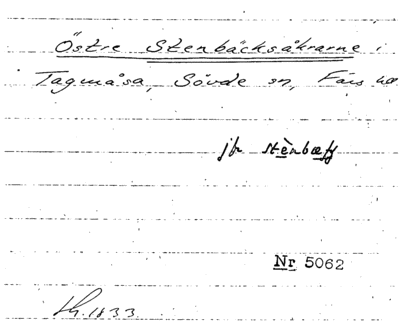 Östre Stenbäcksåkrarne i
Tagmåsa, Sövde sn, Färs hd
jfr stènbæk
Nr 5062
Lh. 1833